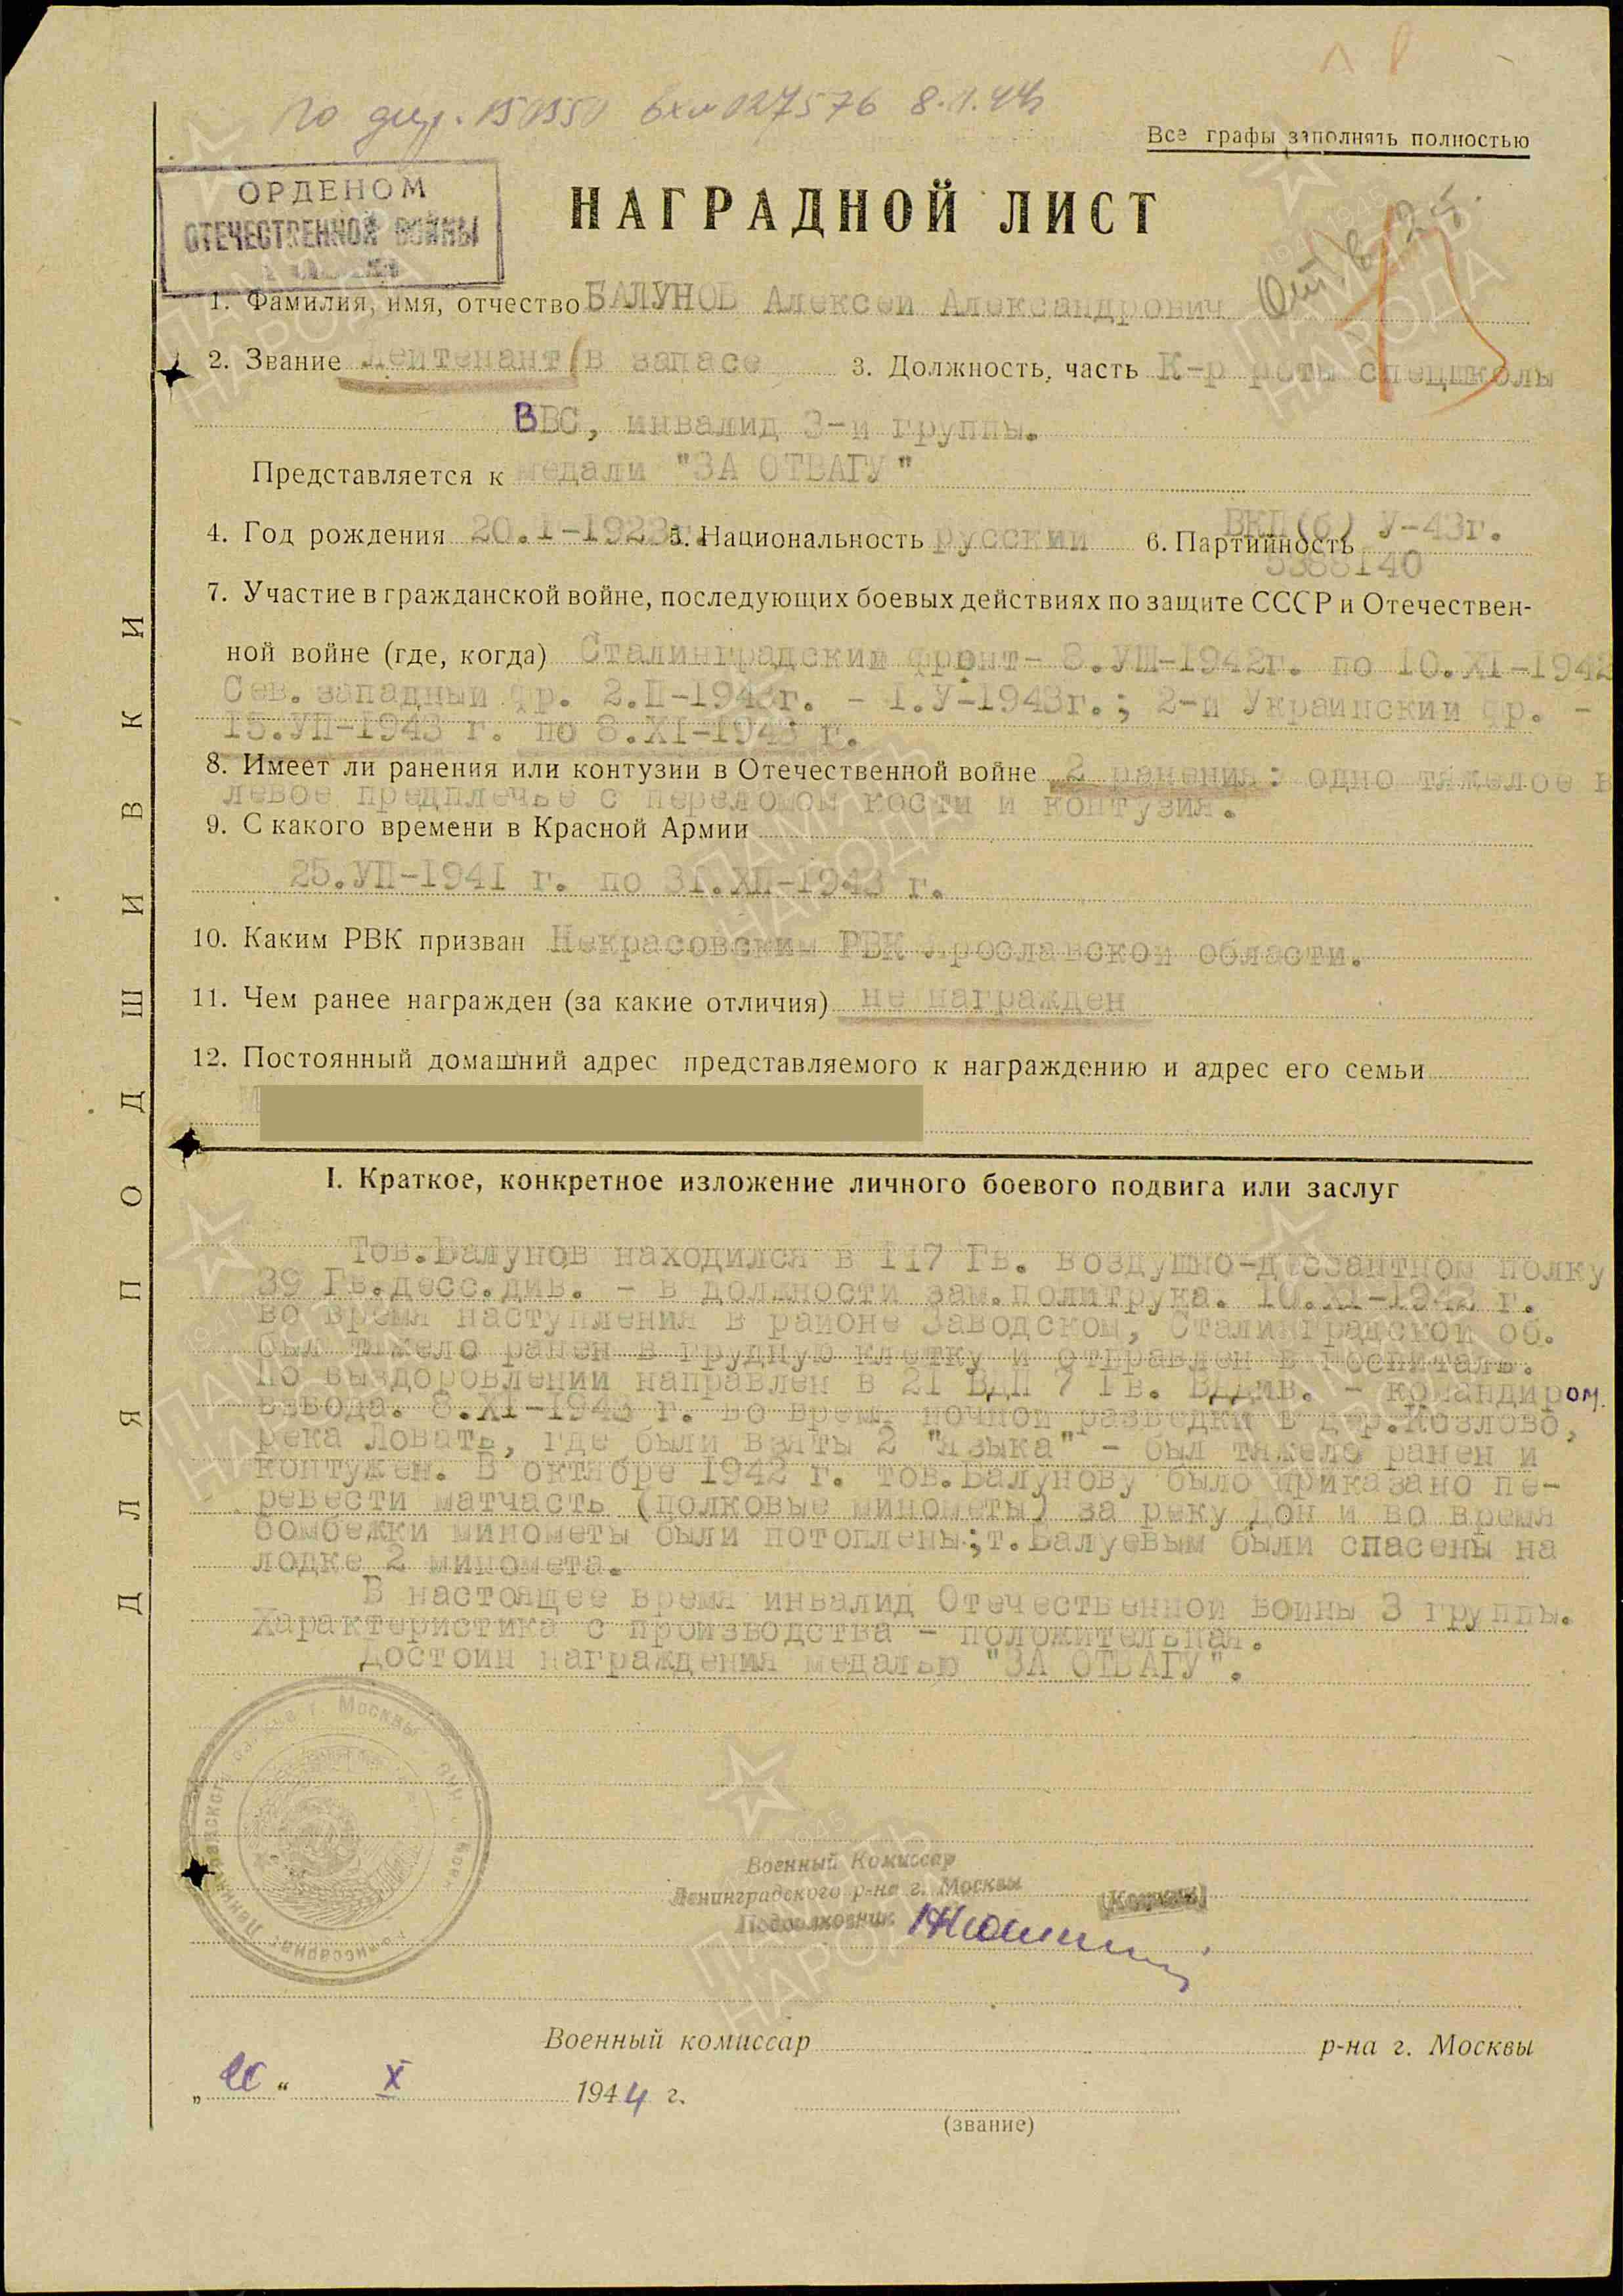 вх № 027576 8.11.44
Все графы заполнять полностью
ОРДЕНОМ
ОТЕЧЕСТВЕННОЙ ВОЙНЫ
НАГРАДНОЙ ЛИСТ
1. Фамилия, имя, отчество БАЛУНОВ Алексей Александрович
2. Звание Лейтенант в запасе 3. Должность, часть К-р роты спецшколы
ВВС, инвалид 3-й группы.
Представляется к медали "ЗА ОТВАГУ"
4. Год рождения 20.I-1923г. 5. Национальность русский 6. Партийность ВКП(б) У-43г.
5388140
7. Участие в гражданской войне, последующих боевых действиях по защите СССР и Отечествен-
ной войне (где, когда) Сталинградский фронт- 8.УШ-1942г. по 10.XI-1942
Сев.западный фр. 2.П-1943г. - 1.У-1943г.; 2-й Украинский фр. -
15.УП-1943 г. по 8.XI-1943 г.
8. Имеет ли ранения или контузии в Отечественной войне 2 ранения: одно тяжелое в
левое предплечье с переломом кости и контузия.
9. С какого времени в Красной Армии
25.УП-1941 г. по 31.ХП-1943 г.
10. Каким РВК призван Некрасовским РВК Ярославской области.
11. Чем ранее награжден (за какие отличия) не награжден
12. Постоянный домашний адрес представляемого к награждению и адрес его семьи
I. Краткое, конкретное изложение личного боевого подвига или заслуг
Тов.Балунов находился в 117 Гв. воздушно-дессантном полку
39 Гв.десс.див. - в должности зам.политрука. 10.XI-1942 г.
во время наступления в районе Заводском, Сталинградской об.
был тяжело ранен в грудную клетку и отправлен в госпиталь.
По выздоровлении направлен в 21 ВДП 7 Гв. ВДДив. - командиром
взвода. 8.XI-1943 г. во время ночной разведки в дер.Козлово,
река Ловать, где были взяты 2 "языка" - был тяжело ранен и
контужен. В октябре 1942 г. тов.Балунову было приказано пе-
ревести матчасть (полковые минометы) за реку Дон и во время
бомбежки минометы были потоплены;т.Балуевым были спасены на
лодке 2 миномета.
В настоящее время инвалид Отечественной войны 3 группы.
Характеристика с производства - положительная.
Достоин награждения медалью "ЗА ОТВАГУ".
Военный Комиссар
Ленинградского р-на г. Москвы
Подполковник
Военный комиссар р-на г. Москвы
" " X 1944 г.
(звание)
ДЛЯ ПОДШИВКИ
ПАМЯТЬ
НАРОДА